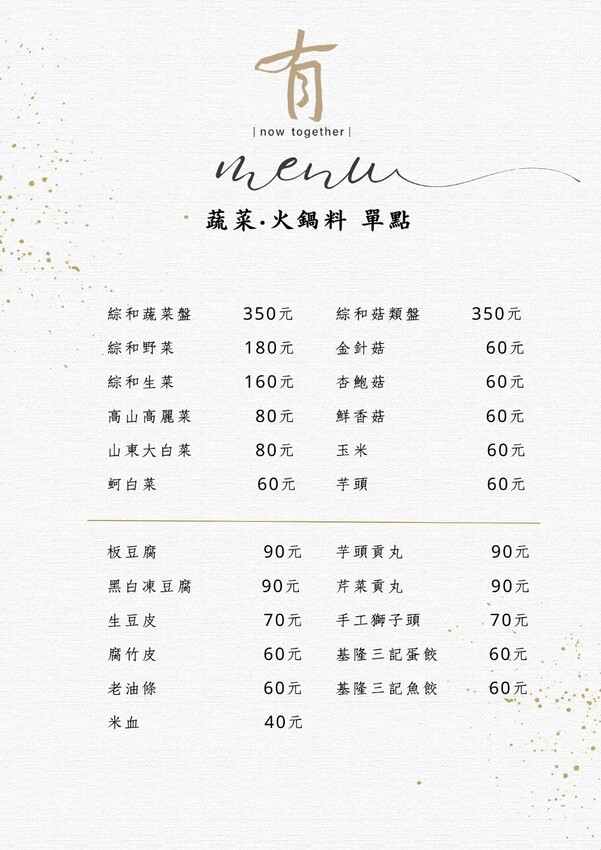 有
|now together|
menu
蔬菜·火鍋料 單點
綜和蔬菜盤 350元 綜和菇類盤 350元
綜和野菜 180元 金針菇 60元
綜和生菜 160元 杏鮑菇 60元
高山高麗菜 80元 鮮香菇 60元
山東大白菜 80元 玉米 60元
蚵白菜 60元 芋頭 60元
板豆腐 90元 芋頭貢丸 90元
黑白凍豆腐 90元 芹菜貢丸 90元
生豆皮 70元 手工獅子頭 70元
腐竹皮 60元 基隆三記蛋餃 60元
老油條 60元 基隆三記魚餃 60元
米血 40元